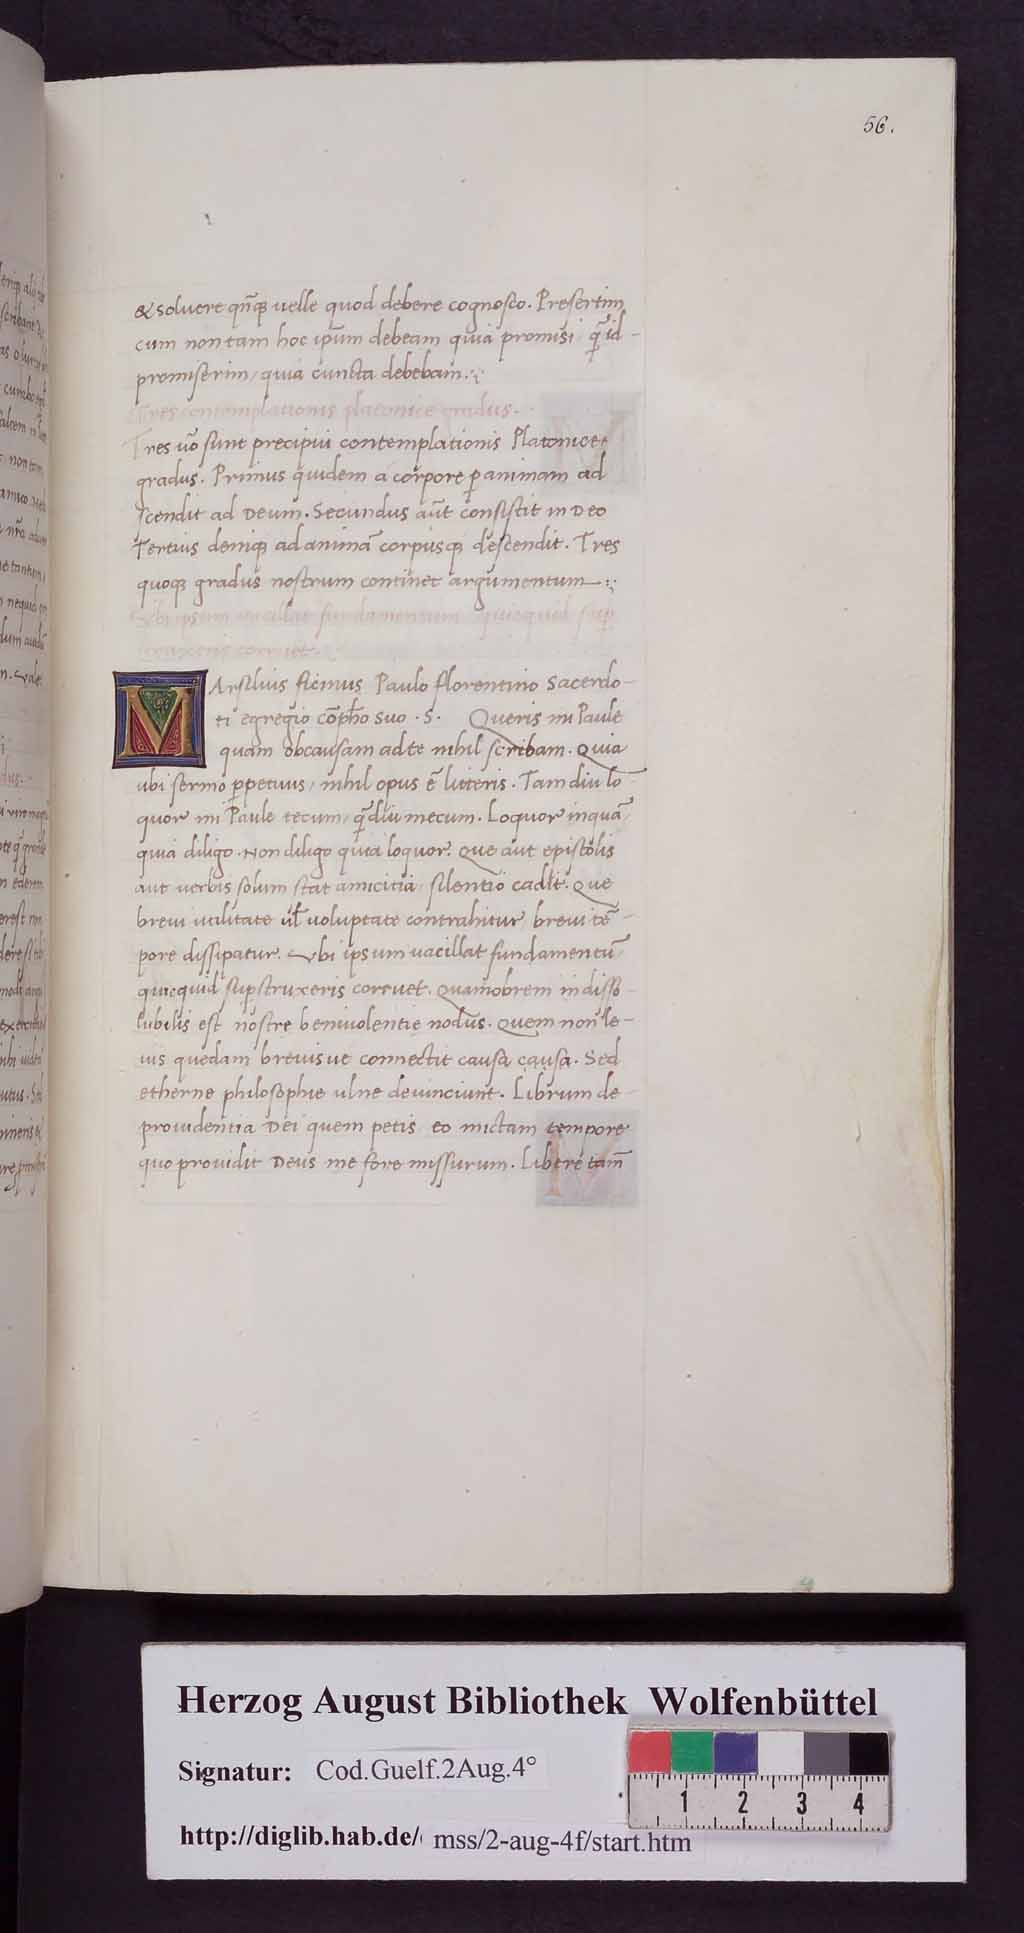 56.
& soluere qn̄q̨ uelle quod debere cognosco. Presertim
cum non tam hoc ip̄um debeam quia promisi / q̄ id-
promiserim / quia cuncta debebam.
Tres contemplationis platonice gradus.
Tres uō sunt precipui contemplationis Platonice
gradus. Primus quidem a corpore p animam ad
scendit ad Deum. Secundus aūt consistit in Deo
Tertius deniq̨ ad animā corpusq̨ descendit. Tres
quoq̨ gradus nostrum continet argumentum
Vbi ipsum uacillat fundamentum quicquid sup
struxeris corruet.
MArsilius ficinus Paulo florentino Sacerdo-
ti egregio cōpho suo . S. Queris mi Paule
quam ob causam ad te nihil scribam. Quia
ubi sermo ppetuus / nihil opus ē litteris. Tam diu lo-
quor mi Paule tecum / q̄diu mecum. Loquor inquā
quia diligo. Non diligo quia loquor. Que aut epistolis
aut uerbis solum stat amicitia / silentio cadit. Que
breui utilitate ul̄ uoluptate contrahitur / breui tē-
pore dissipatur. Vbi ipsum uacillat fundamentū /
quicquid supstruxeris corruet. Quamobrem indisso-
lubilis est nostre beniuolentie nodus. Quem non le-
uis quedam breuisue connectit causa causa. Sed
etherne philosophie ulne deuinciunt. Librum de-
prouidentia Dei quem petis eo mictam tempore
quo prouidit Deus me fore missurum. Libere tam̄
Herzog August Bibliothek Wolfenbüttel
Signatur: Cod.Guelf.2Aug.4°
1 2 3 4
http://diglib.hab.de/ mss/2-aug-4f/start.htm